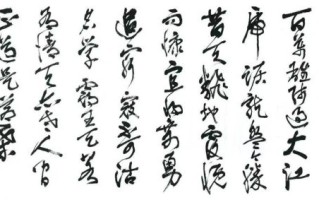 百萬雄師過大江
虎踞龍盤今勝
昔天翻地覆慨
而慷宜將剩勇
追窮寇不可沽
名學霸王天若
有情天亦老人間
正道是滄桑